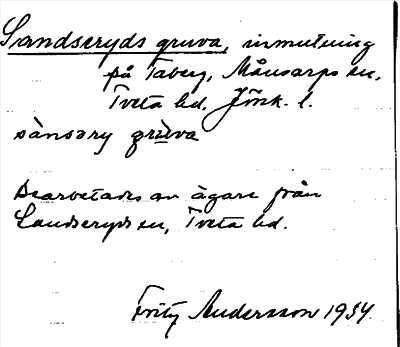 Sandseryds gruva, inmutning
på Taberg, Månsarps sn,
Tveta hd, Jönk. l.
sànsəry grùva
Bearbetades av ägare från
Sandseryds sn, Tveta hd.
Fritz Andersson 1934.